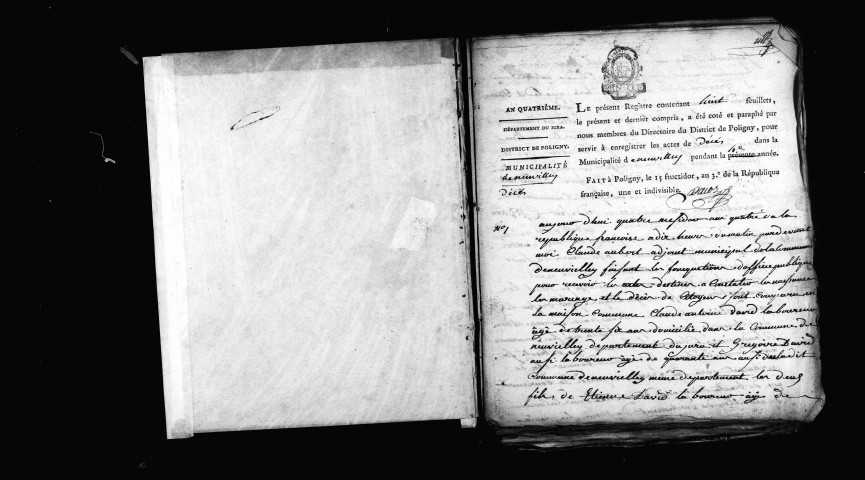 AN QUATRIÈME.
DÉPARTEMENT DU JURA.
DISTRICT DE POLIGNY.
MUNICIPALITÉ
de neuvilley
Décès
LE présent Registre contenant huit feuillets,
le présent et dernier compris, a été coté et paraphé par
nous membres du Directoire du District de Poligny, pour
servir à enregistrer les actes de Décès dans la
Municipalité d eneuvilley pendant la présente 4.e année.
FAIT à Poligny, le 15 fructidor, an 3.e de la République
française, une et indivisible.
No 1
aujourd'hui quatre messidor an quatre de la
republique francoise a dix heures du matin pardevant
moi Claude aubert adjoint municipal de la Commune
deneuvilley faisant les fonquetions d'officie publique
pour recevoir les actes destinés a Constater les naissances
les mariage et le décès de Citoyens sont comparu en
la maison Commune Claude antoine david laboureur
âgé de trente six ans domicilié dans la Commune de
neuvilley departement du jura et Gregoire David
aussi laboureur âgé de quarante ans aussi de ladit
Commune deneuvilley même departement les deux
fils de Etienne David laboureur âgé de